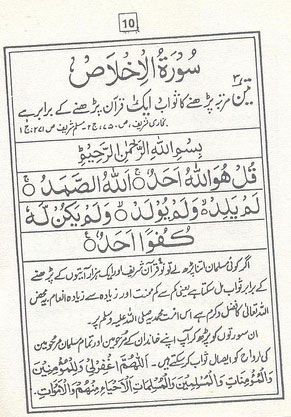 10
سُوْرَةُ الْاِخْلَاصِ
تین مرتبہ پڑھنے کا ثواب ایک قرآن پڑھنے کے برابر ہے
بخاری شریف، ص ۷۵۰، ج ۲ - مسلم شریف ص ۲۷۱ ج ۱
بِسْمِ اللّٰهِ الرَّحْمٰنِ الرَّحِيْمِ
قُلْ هُوَ اللّٰهُ اَحَدٌ ۚ اَللّٰهُ الصَّمَدُ ۚ
لَمْ يَلِدْ ۙ وَلَمْ يُوْلَدْ ۙ وَلَمْ يَكُنْ لَّهٗ
كُفُوًا اَحَدٌ ۠
اگر کوئی مسلمان اتنا پڑھ لے تو نو قرآن شریف اور ایک ہزار آیتوں کے پڑھنے
کے برابر ثواب مل سکتا ہے یعنی کم سے کم محنت اور زیادہ سے زیادہ انعام۔ یہ محض
اللہ تعالیٰ کا فضل و کرم ہے اس امت محمدیہ صلی اللہ علیہ وسلم پر۔
ان سورتوں کو پڑھ کر آپ اپنے خاندان کے مرحومین اور تمام مسلمان مرحومین
کی ارواح کو ایصال ثواب کر سکتے ہیں۔ اَللّٰهُمَّ اغْفِرْ لِيْ وَلِلْمُؤْمِنِيْنَ
وَالْمُؤْمِنَاتِ وَالْمُسْلِمِيْنَ وَالْمُسْلِمَاتِ الْاَحْيَاءِ مِنْهُمْ وَالْاَمْوَاتِ۔